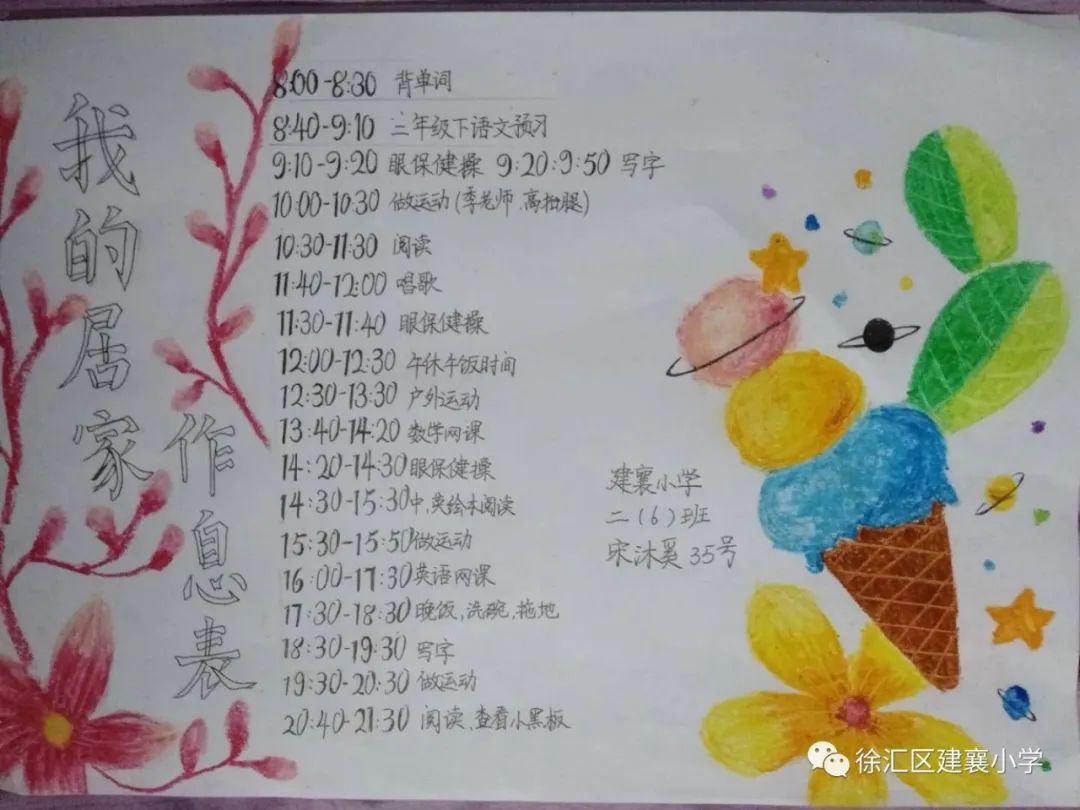 我的居家
作息表
8:00-8:30 背单词
8:40-9:10 三年级下语文预习
9:10-9:20 眼保健操 9:20:9:50 写字
10:00-10:30 做运动(季老师、高抬腿)
10:30-11:30 阅读
11:40-12:00 唱歌
11:30-11:40 眼保健操
12:00-12:30 午休午饭时间
12:30-13:30 户外运动
13:40-14:20 数学网课
14:20-14:30 眼保健操
14:30-15:30 中、英绘本阅读
15:30-15:50 做运动
16:00-17:30 英语网课
17:30-18:30 晚饭、洗碗、拖地
18:30-19:30 写字
19:30-20:30 做运动
20:40-21:30 阅读、查看小黑板
建襄小学
二(6)班
宋沐奚 35号
徐汇区建襄小学